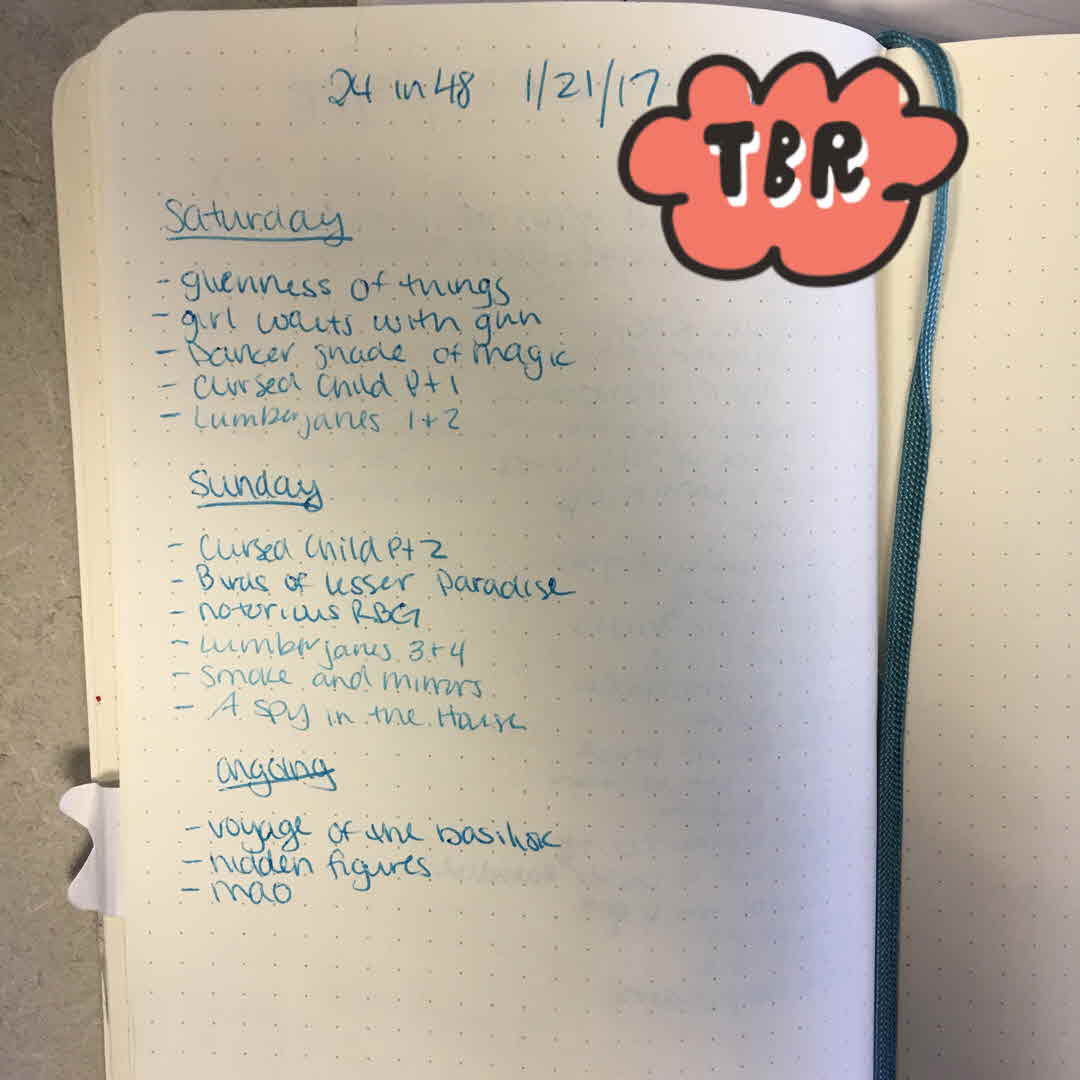 24 in 48 1/21/17
TBR
Saturday
- givenness of things
- girl waits with gun
- Darker shade of magic
- Cursed Child Pt 1
- Lumberjanes 1+2
Sunday
- Cursed Child Pt 2
- Birds of Lesser Paradise
- notorious RBG
- Lumberjanes 3+4
- Smoke and mirrors
- A Spy in the House
ongoing
- voyage of the basilisk
- hidden figures
- mao